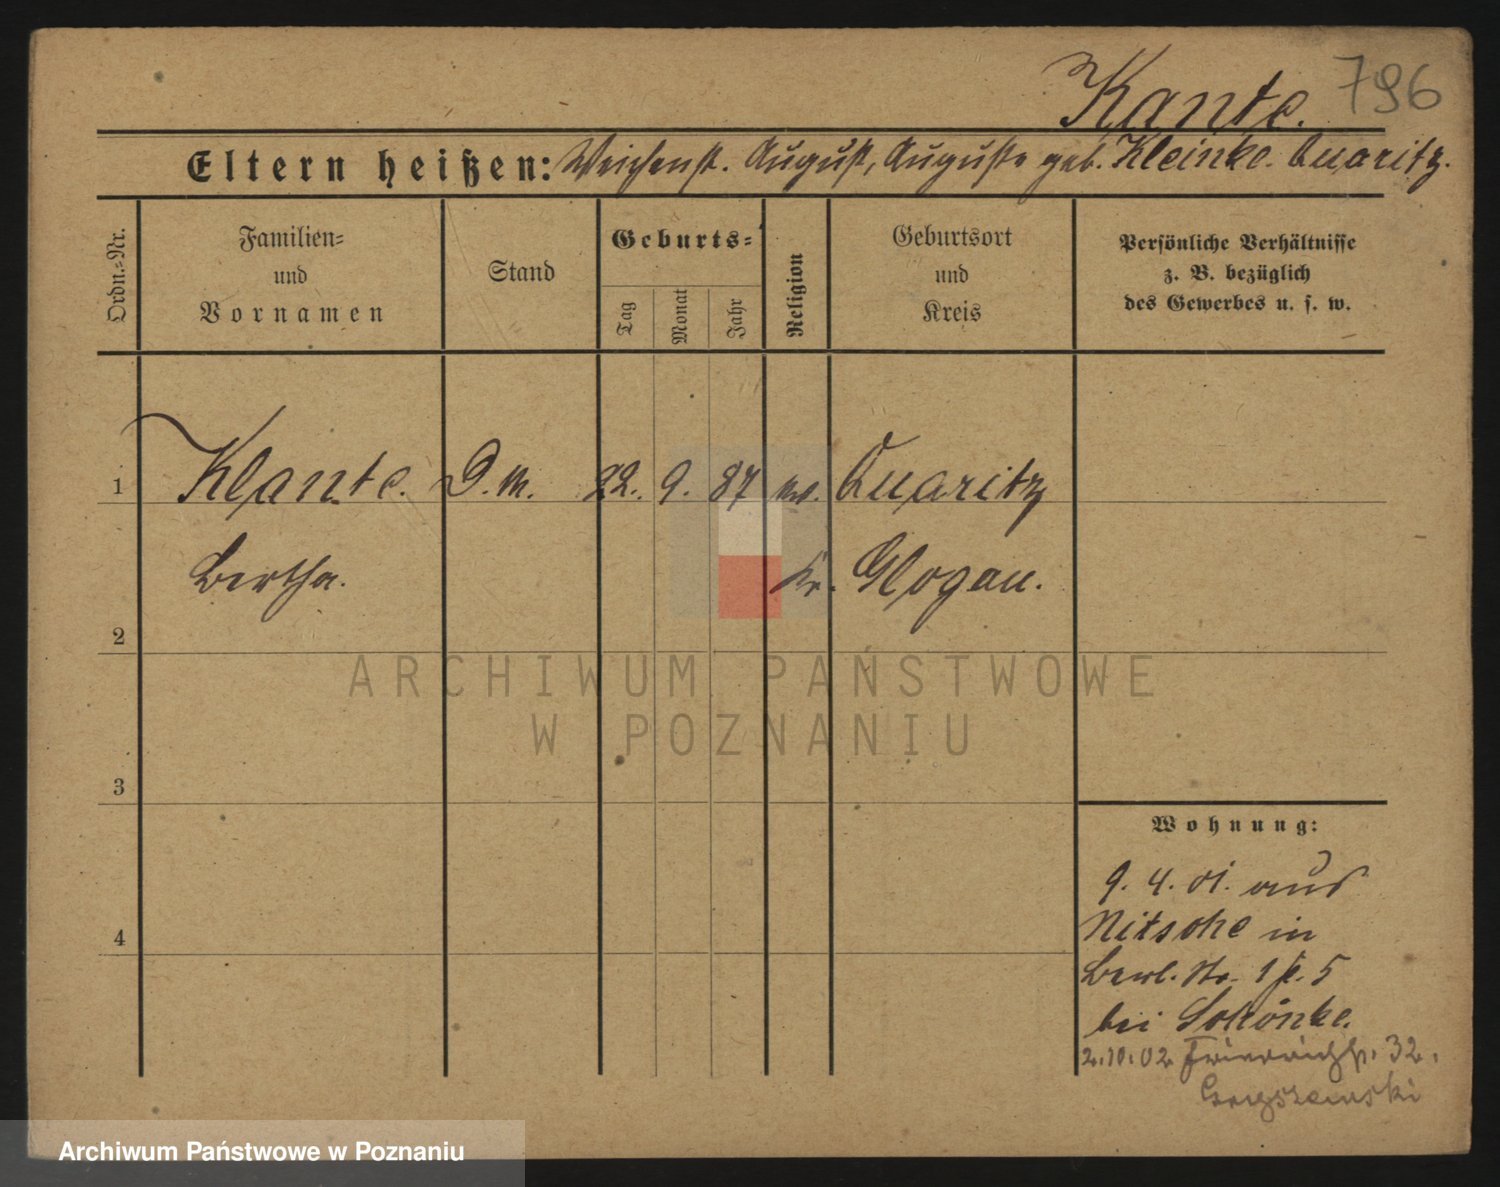 Kante. 796
Eltern heißen: Weichenst. August, Auguste geb. Kleinke. Quaritz.
Ordn.-Nr.
Familien- und Vornamen
Stand
Geburts-
Tag
Monat
Jahr
Religion
Geburtsort und Kreis
Persönliche Verhältnisse
z. B. bezüglich
des Gewerbes u. s. w.
1 Klante. D. M. 22. 9. 87 ev. Quaritz
Bertha. Kr. Glogau.
2
ARCHIWUM PAŃSTWOWE
W POZNANIU
3
Wohnung:
9. 4. 01. aus
Nitsche in
4
Berl. Str. 1 5
bei Schönke.
2.10.02 Friedrichst. 32.
Archiwum Państwowe w Poznaniu